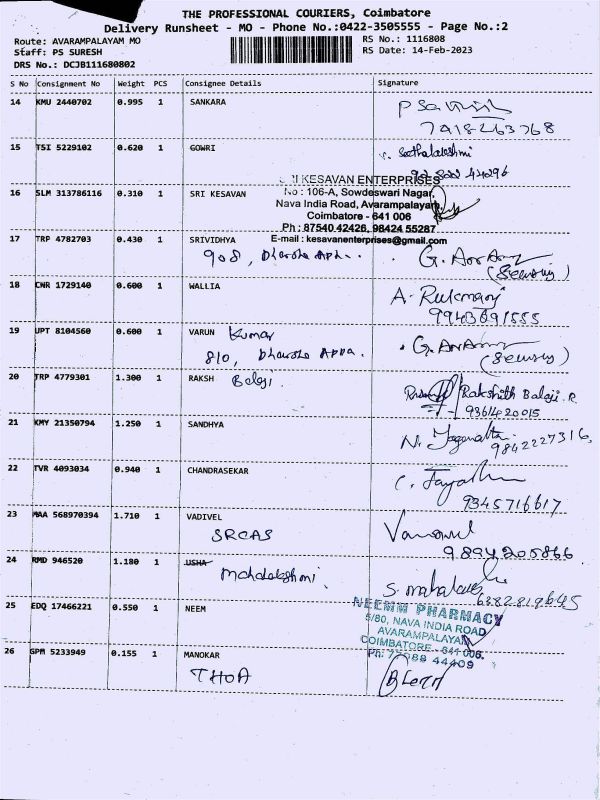 THE PROFESSIONAL COURIERS, Coimbatore
Delivery Runsheet - MO - Phone No.:0422-3505555 - Page No.:2
Route: AVARAMPALAYAM MO
Staff: PS SURESH
DRS No.: DCJB111680802
RS No.: 1116808
RS Date: 14-Feb-2023
S No Consignment No Weight PCS Consignee Details Signature
14 KMU 2440702 0.995 1 SANKARA
15 TSI 5229102 0.620 1 GOWRI
Seethalakshmi
16 SLM 313786116 0.310 1 SRI KESAVAN
KESAVAN ENTERPRISES
No : 106-A, Sowdeswari Nagar,
Nava India Road, Avarampalayam,
Coimbatore - 641 006
Ph : 87540 42426, 98424 55287
E-mail : kesavanenterprises@gmail.com
17 TRP 4782703 0.430 1 SRIVIDHYA
908,
18 CWR 1729140 0.600 1 WALLIA
A. Rukmani
19 UPT 8104560 0.600 1 VARUN Kumar
810,
20 TRP 4779301 1.300 1 RAKSH Balaji
Rakshith Balaji. R
9361420015
21 KMY 21350794 1.250 1 SANDHYA
9842227316
22 TVR 4093034 0.940 1 CHANDRASEKAR
9345716617
23 MAA 568970394 1.710 1 VADIVEL
SRCAS
9894205866
24 RMD 946520 1.180 1 USHA
Mahalakshmi
6382819645
25 EDQ 17466221 0.550 1 NEEM
NEEMM PHARMACY
5/80, NAVA INDIA ROAD
AVARAMPALAYAM
COIMBATORE - 641 006.
26 GPM 5233949 0.155 1 MANOKAR